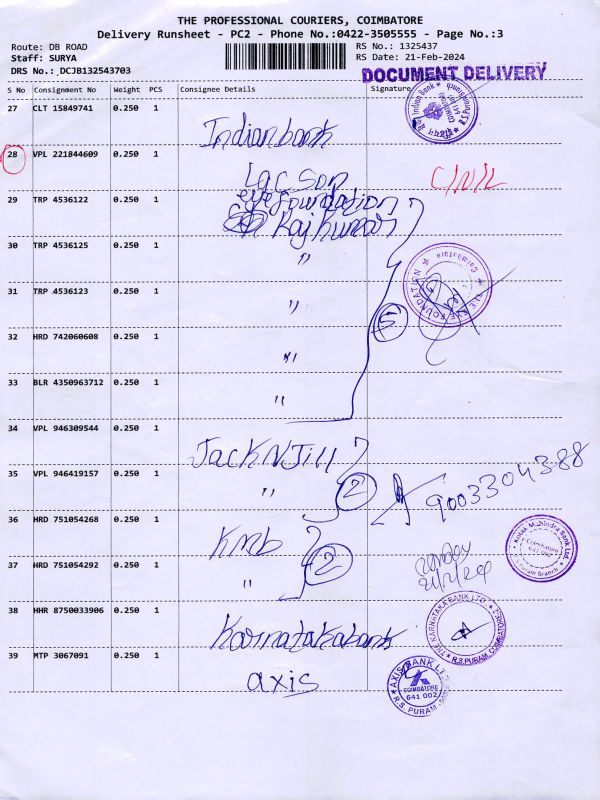 THE PROFESSIONAL COURIERS, COIMBATORE
Delivery Runsheet - PC2 - Phone No.:0422-3505555 - Page No.:3
Route: DB ROAD
Staff: SURYA
DRS No.: DCJB132543703
RS No.: 1325437
RS Date: 21-Feb-2024
DOCUMENT DELIVERY
S No Consignment No Weight PCS Consignee Details Signature
27 CLT 15849741 0.250 1 Indianbank
Indian Bank
28 VPL 221844609 0.250 1 Lacson
29 TRP 4536122 0.250 1 eyefoundation
Rajkumar
30 TRP 4536125 0.250 1 "
THE EYE FOUNDATION Coimbatore
31 TRP 4536123 0.250 1 "
5
32 HRD 742060608 0.250 1 "
33 BLR 4350963712 0.250 1 "
34 VPL 946309544 0.250 1 JackNJill
35 VPL 946419157 0.250 1 " 2 9003304388
36 HRD 751054268 0.250 1 Kmb
Kotak Mahindra Bank Ltd.
Coimbatore
641 002
R.S Puram Branch
37 HRD 751054292 0.250 1 " 2
38 HHR 8750033906 0.250 1 Karnatakabank
THE KARNATAKA BANK LTD.
R.S.PURAM, COIMBATORE-2
39 MTP 3067091 0.250 1 axis
AXIS BANK LTD
COIMBATORE
641 002
R.S. PURAM